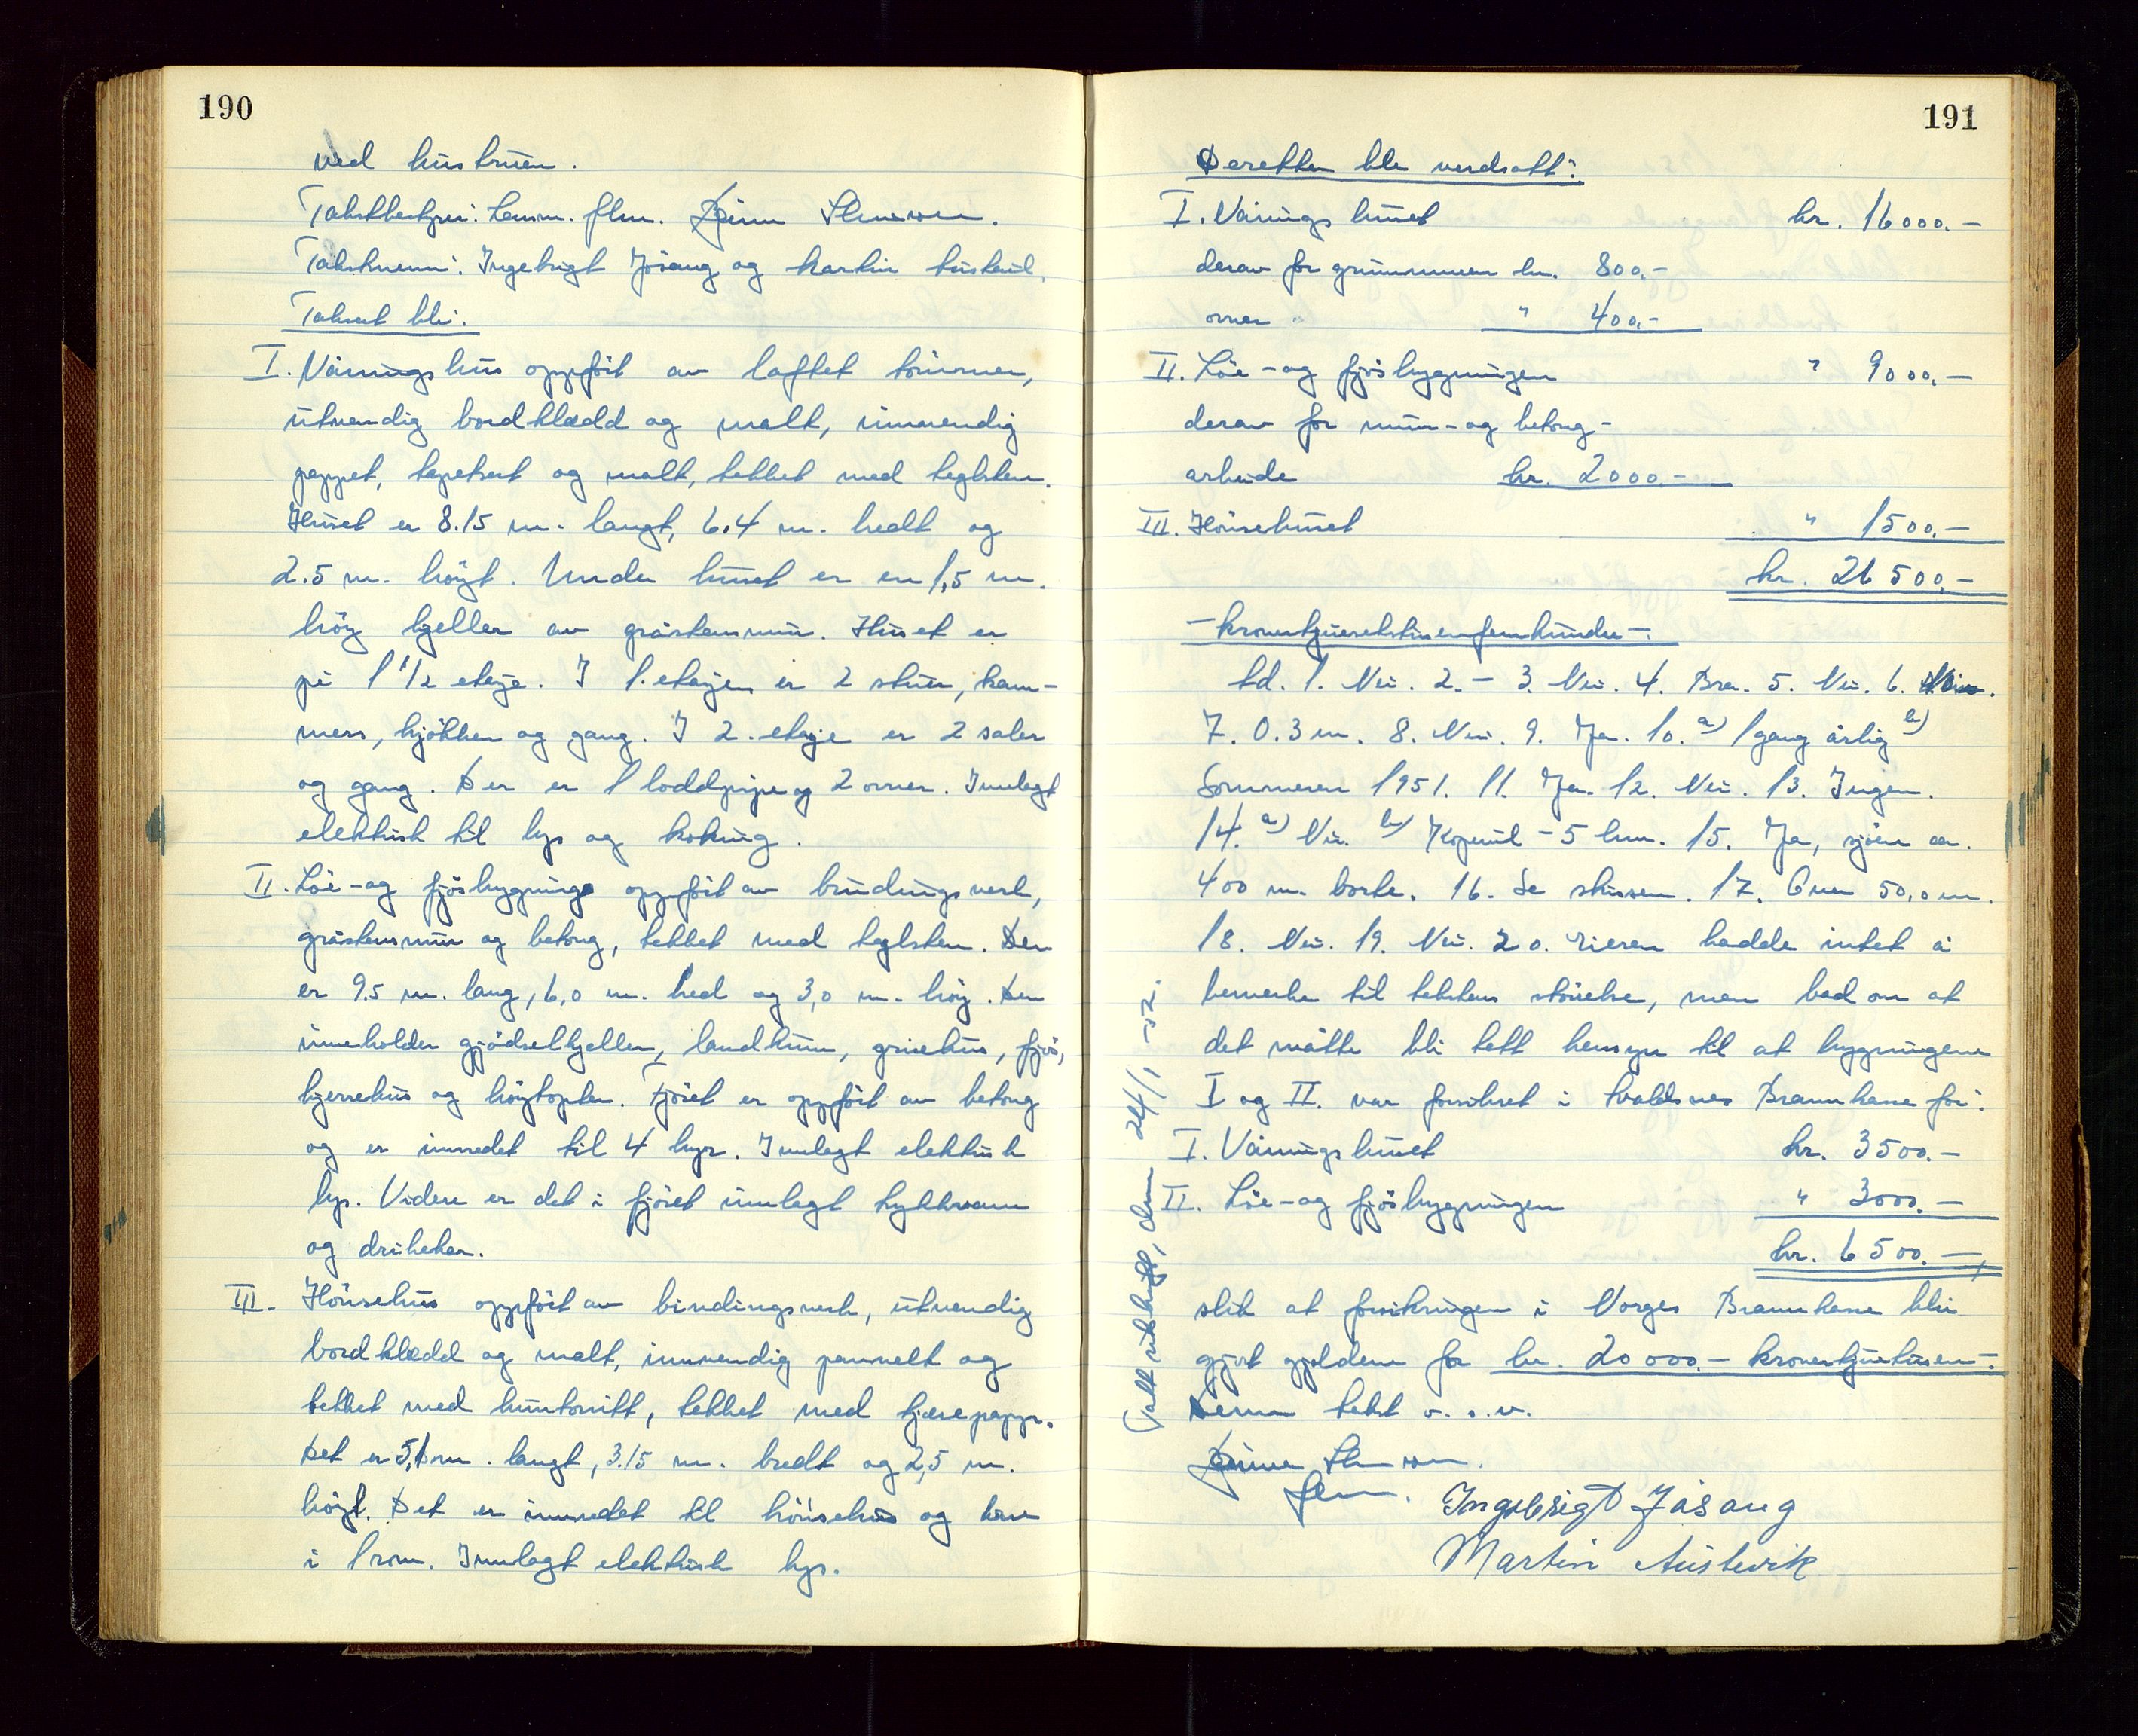 190
ved hustruen.
Takstbestyrer: Lensm. flm.
Takstmenn: Ingebrigt Jåsang og Martin Austevik.
Taksert ble:
I. Våningshus oppført av laftet tømmer,
utvendig bordklædd og malt, innvendig
pappet, tapetsert og malt, tekket med teglsten.
Huset er 8.15 m. langt, 6.4 m. bredt og
2.5 m. høyt. Under huset er en 1,5 m.
høy kjeller av gråstensmur. Huset er
på 1 1/2 etasje. I 1. etasjen er 2 stuer, kam-
mers, kjøkken og gang. I 2. etasje er 2 saler
og gang. Der er 1 loddpipe og 2 ovner. Innlagt
elektrisk til lys og koking.
II. Løe- og fjøsbygning oppført av bindingsverk,
gråstensmur og betong, tekket med teglsten. Den
er 9.5 m. lang, 6,0 m. bred og 3,0 m. høy. Den
inneholder gjødselkjeller, landkum, grisehus, fjøs,
kjerrehus og høytopter. Fjøset er oppført av betong
og er innredet til 4 kyr. Innlagt elektrisk
lys. Videre er det i fjøset innlagt trykkvann
og drikkekar.
III. Hönsehus oppført av bindingsverk, utvendig
bordklædd og malt, innvendig pannelt og
tekket med huntonitt, tekket med tjærepapp.
Det er 5,1 m. langt, 3.15 m. bredt og 2,5 m.
høyt. Det er innredet til hönsehus og har
i 1 rom. Innlagt elektrisk lys.
191
Deretter ble verdsatt:
I. Våningshuset kr. 16000.-
derav for grunnmuren kr. 800.-
ovner " 400.-
II. Løe- og fjøsbygningen " 9000.-
derav for mur- og betong-
arbeide kr. 2000.-
III. Hönsehuset " 1500.-
kr. 26500.-
-kronertjuesekstusenfemhundre-.
td. 1. Nei. 2. - 3. Nei. 4. Bra. 5. Nei. 6.
7. 0.3 m. 8. Nei. 9. Ja. 10. a) 1 gang årlig b)
Sommeren 1951. 11. Ja. 12. Nei. 13. Ingen.
14. a) Nei. b) Kopervik - 5 km. 15. Ja, sjøen ca.
400 m. borte. 16. Se skissen. 17. Over 50,0 m.
18. Nei. 19. Nei. 20. Eieren hadde intet å
bemerke til takstens størrelse, men bad om at
det måtte bli tatt hensyn til at bygningene
I og II. var forsikret i Avaldsnes Brannkasse for:
I. Våningshuset kr. 3500.-
II. Løe- og fjøsbygningen " 3000.-
kr. 6500.-,
slik at forsikringen i Norges Brannkasse blir
gjort gjeldene for kr. 20000.- kronertjuetusen-.
Denne takst o. s. v.
flm.
Ingebrigt Jåsang
Martin Austevik
Tatt utskrift, den 24/1 -52.